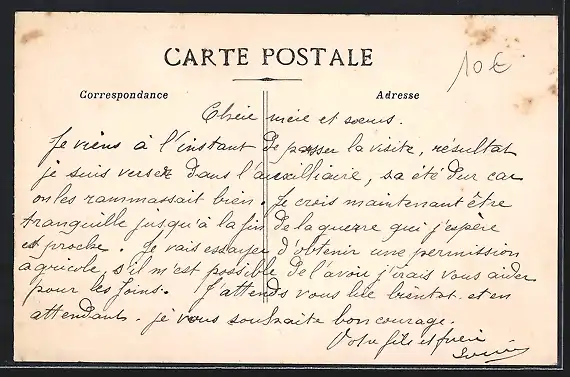 CARTE POSTALE
10€
Correspondance
Adresse
Chère mère et sœurs.
Je viens à l'instant de passer la visite, résultat
je suis versé dans l'auxilliaire, sa été dur car
on les rammassait bien. Je crois maintenant être
tranquille jusqu'à la fin de la guerre qui j'espère
est proche. Je vais essayer d'obtenir une permission
agricole, s'il m'est possible de l'avoir j'irais vous aider
pour les foins. J'attends vous lire bientot. et en
attendant. je vous souhaite bon courage.
Votre fils et frère